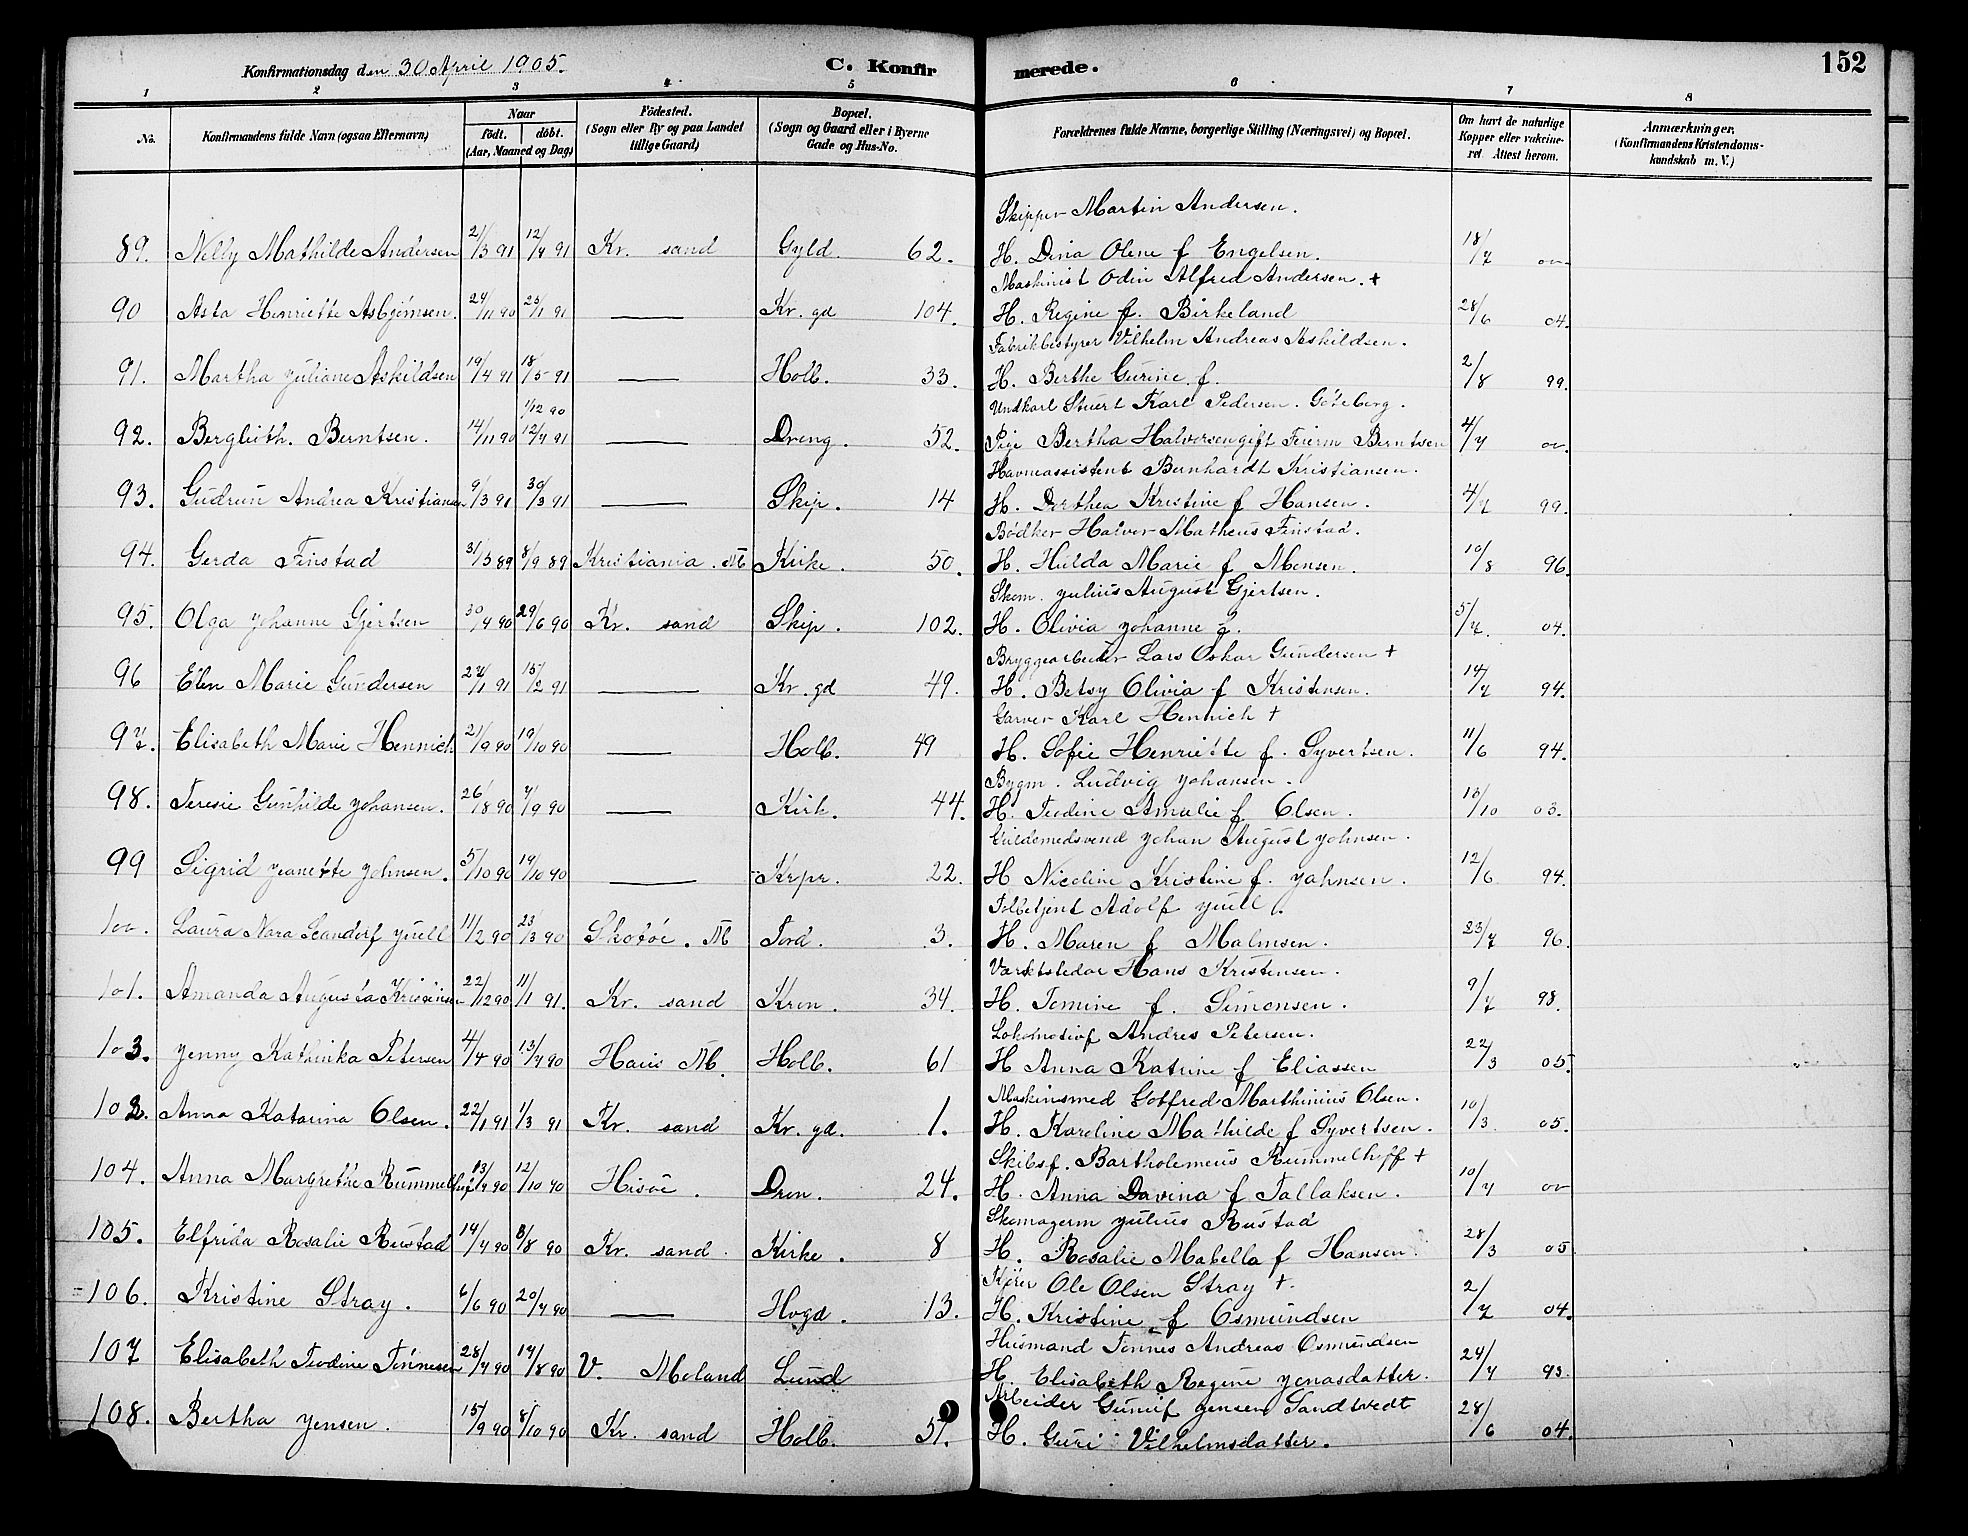 152
Konfirmationsdag den 30 April 1905. C. Konfirmerede.
1 2 3 4 5 6 7 8
No. Konfirmandens fulde Navn (ogsaa Efternavn) Naar født. døbt. (Aar, Maaned og Dag) Fødested. (Sogn eller By og paa Landet tillige Gaard) Bopæl. (Sogn og Gaard eller i Byerne Gade og Hus-No. Forældrenes fulde Navne, borgerlige Stilling (Næringsvei) og Bopæl. Om havt de naturlige Kopper eller vakcineret Attest herom. Anmærkninger, (Konfirmandens Kristendomskundskab m. V.)
Skipper Martin Andersen.
89. Nelly Mathilde Andersen 21/3 91 12/4 91 Kr. sand Gyld. 62. H. Dina Olene f Engelsen. 18/7
Maskinist Odin Alfred Andersen. +
90 Asta Henriette Asbjørnsen. 24/11 90 23/1 91 — Kr. gd 104. H. Regine f. Birkeland 28/6 04.
Fabrikbestyrer Vilhelm Andreas Askildsen.
91. Martha Juliane Askildsen 19/4 91 18/5 91 — Holb. 33. H. Berthe Gurine f. 2/8 99.
1/12 90 Undkarl Stuert Karl Pedersen. Göteborg.
92. Berglioth. Berntsen. 14/11 90 12/4 91 — Dreng. 52. Pige Bertha Halvorsen gift Berntsen 4/7
Havneassistent Bernhardt Kristiansen.
93. Gudrun Andrea Kristiansen 9/3 91 30/3 91 — Skip. 14 H. Dorthea Kristine f Hansen. 4/7 99.
Bødker Halvor Matheus Finstad.
94. Gerda Finstad 31/3 89 8/9 89 Kristiania. M Kirke. 50. H. Hulda Marie f Monsen. 10/8 96.
Skom. Julius August Gjertsen.
95. Olga Johanne Gjertsen 30/4 90 29/6 90 Kr. sand Skip. 102. H. Olivia Johanne 5/7. 04.
Bryggearbeider Lars Oskar Gundersen +
96 Elen Marie Gundersen 27/1 91 15/2 91 — Kr. gd 49. H. Betsy Olivia f Kristensen. 14/7 94.
Garver Karl Hennich +
97. Elisabeth Marie Hennich. 21/9 90 19/10 90 — Holb. 49 H. Sofie Henriette f. Syvertsen. 11/6 94.
Bygm. Ludvig Johansen.
98. Teresie Gunhilde Johansen. 26/8 90 7/9 90 — Kirk. 44. H. Teodine Amalie f Olsen. 10/10 03.
Guldsmedsvend Johan August Johnsen.
99 Sigrid Jeanette Johnsen. 5/10 90 19/10 90 — Krpr. 22. H Nicoline Kristine f. Johnsen. 12/6 94.
Tolbetjent Adolf Juell.
100. Laura Nora Leandorf Juell 11/2 90 23/3 90 Skotøe. M Tord. 3. H. Maren f Malmsen. 23/7 96.
Hans Kristensen.
101. Amanda Augusta Kristensen 22/12 90 11/1 91. Kr. sand Kron. 34. H. Tomine f. Simonsen. 9/7 98.
Lokomotivf Andres Petersen.
103. Jenny Kathinka Petersen 4/4 90 13/4 90 Haus M. Holb. 61 H Anna Katrine f Eliassen 22/3 05.
Maskinsmed Gotfred Marthinius Olsen.
102. Anna Katarina Olsen. 22/1 91 1/3 91 Kr. sand Kr. gd. 1. H. Karoline Mathilde f Syvertsen. 10/3. 05.
Skibsf. Bartholemeus Rummelhoff +
104. Anna Margrethe Rummelhoff 13/7 90 12/10 90 Hisøe. Dron. 24. H. Anna Davina f Tallaksen. 10/7
Skomagerm Julius Rustad
105. Elfrida Rosalie Rustad 14/4 90 3/8 90 Kr. sand. Kirke. 8 H. Rosalie Mabella f Hansen. 28/3 05
Kjører Ole Olsen Stray +.
106. Kristine Stray. 6/6 90 20/7 90 — Hvgd. 13. H. Kristine f Osmundsen 2/7 04.
Husmand Tønnes Andreas Osmundsen
107 Elisabeth Teodine Tønnesen 28/7 90 17/8 90 V. Moland Lund H. Elisabeth Regine Jonasdatter. 24/7 93.
Arbeider Gunuf Jensen Sandtvedt
108. Bertha Jensen. 15/9 90 8/10 90 Kr. sand Holb. 51. H. Guri Vilhelmsdatter. 28/6 04.